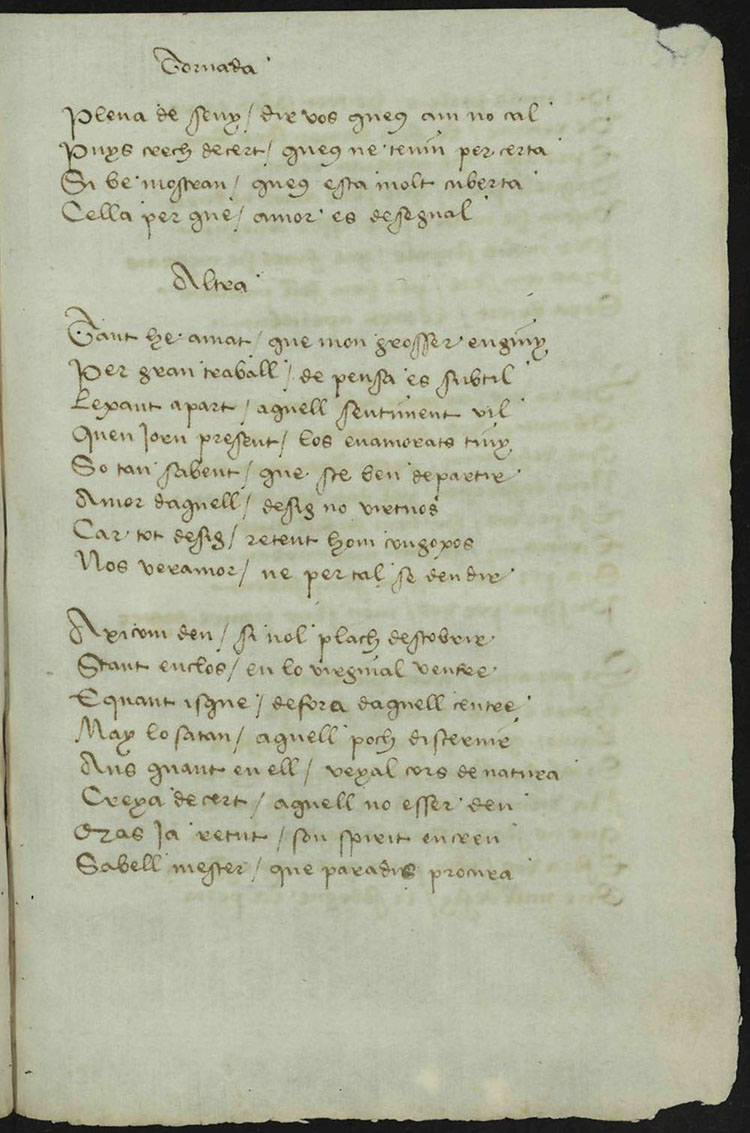 Tornada
Plena de seny / dir vos queus am no cal
Puys crech de cert / queus ne teniu per certa
Si be mostrau / queus esta molt cuberta
Cella per que / amor es desegual
Altra
Tant he amat / que mon grosser enginy
Per gran traball / de pensa es subtil
Lexant a part / aquell sentiment vil
Quen Jorn present / los enamorats tiny
So tan sabent / que sce ben departir
Amor daquell / desig no virtuos
Car tot desig / retent hom congoxos
Nos ver amor / ne per tal se deu dir
Axi com deu / si nol plach descobrir
Stant enclos / en lo virginal ventre
E quant isque / defora daquell centre
May lo satan / aquell poch discernir
Ans quant en ell / veya l cors de natura
Creya de cert / aquell no esser deu
Mas Ja retut / son spirit en creu
Sabell mester / que paradis procura